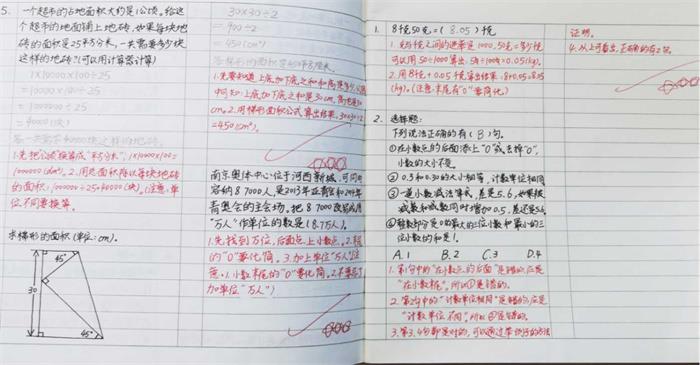 5. 一个超市的占地面积大约是1公顷。给这
个超市的地面铺上地砖，如果每块地
砖的面积是25平方分米，一共需要多少块
这样的地砖？(可以用计算器计算)
1×10000×100÷25
=10000×100÷25
=1000000÷25
=40000(块)
答：一共需要40000块这样的地砖。
1.先把公顷换算成"平方分米"，1×10000×100=
1000000(dm²)。2.用总面积除以每块地砖
的面积：1000000÷25=40000(块)。(注意：单
位不同要换算。
求梯形的面积(单位：cm)。
45°
30
45°
30×30÷2
=900÷2
=450(cm²)
1.先要知道上底加下底之和和高是多少，
中可知：上底加下底之和是30cm，高也是30
cm。2.用梯形面积公式算出结果，30×30÷2
=450(cm²)。
南京奥体中心位于河西新城，可同时
容纳87000人，是2013年亚青会和2014年
青奥会的主会场。把87000改写成用
"万人"作单位的数是(8.7万人)。
1.先找到万位，后面点上小数点。2.末尾
的"0"要化简。3.加上单位"万人"(注
意：1.小数末尾的"0"要化简。2.不要忘了
加单位"万人")
1. 8千克50克=(8.05)千克
1.克与千克之间的进率是1000，50克=多少千克
可以用50÷1000算出：50÷1000=0.05(kg)。
2.用8千克+0.05千克算出结果：8+0.05=8.05
(kg)。(注意：末尾有"0"要简化)
2. 选择题：
下列说法正确的有(B)句。
①在小数点的后面添上"0"或去掉"0"，
小数的大小不变。
②0.3和0.30的大小相等，计数单位相同
③一道小数减法算式，差是5.6，如果被
减数和减数同时增加0.5，差还是5.6。
④整数部分是0的最大的三位小数和最小的三
位小数的和是1。
A.1 B.2 C.3 D.4
1.第1句中的"在小数点的后面"是错的，应是
"在小数末尾"。所以①是错的。
2.第2句中的"计数单位相同"是错的，应是
"计数单位不同"，所以②是错的。
3.第3、4句都是对的，可以通过举例子的方法
证明。
4.从上可看出，正确的有2句。